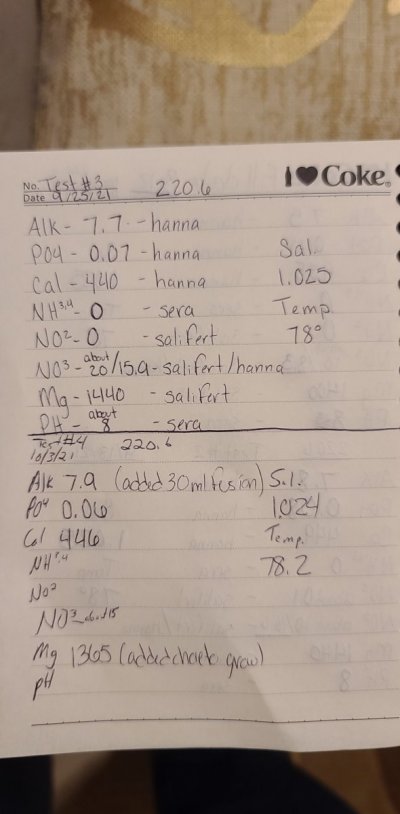 I ♥ Coke®
No. Test #3 220.6
Date 9/25/21
Alk - 7.7 - hanna
PO4 - 0.07 - hanna Sal.
Cal - 440 - hanna 1.025
NH³,⁴ - 0 - sera Temp
NO² - 0 - salifert 78°
NO³ - about 20/15.9 - salifert/hanna
Mg - 1440 - salifert
PH - about 8 - sera
Test #4 220.6
10/3/21
Alk 7.9 (added 30ml fusion) S.I.
PO⁴ 0.06 1.024
Cal 446 Temp.
NH³,⁴ 78.2
NO²
NO³ - about 15
Mg 1365 (added chaeto grow)
pH